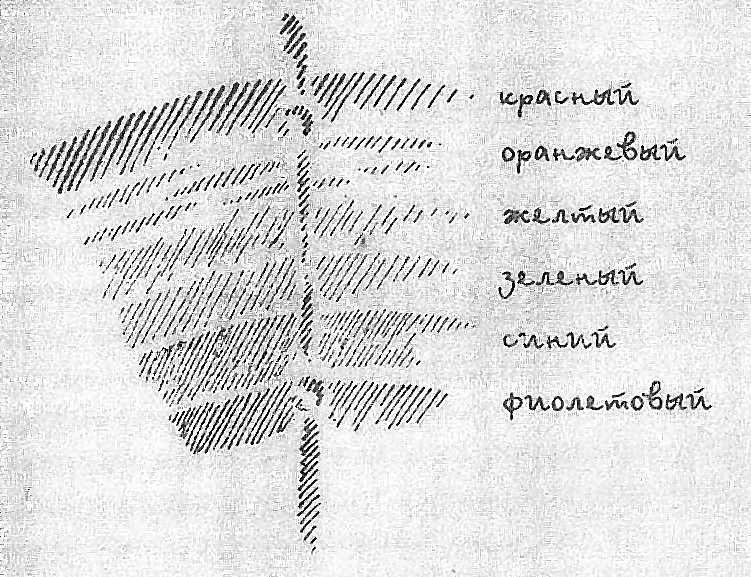 красный
оранжевый
желтый
зеленый
синий
фиолетовый